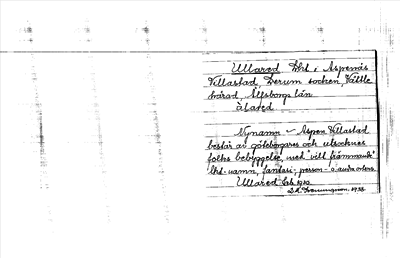 Ullared lht. i Aspenäs
Villastad, Lerum socken, Vättle
härad, Älfsborgs län
ålared
Nynamn – Aspen Villastad
består av göteborgares och utsocknes
folks bebyggelse, med "vilt främmande"
lht.-namn, fantasi-, person- o. andra orters.
Ullared 1910
1938.